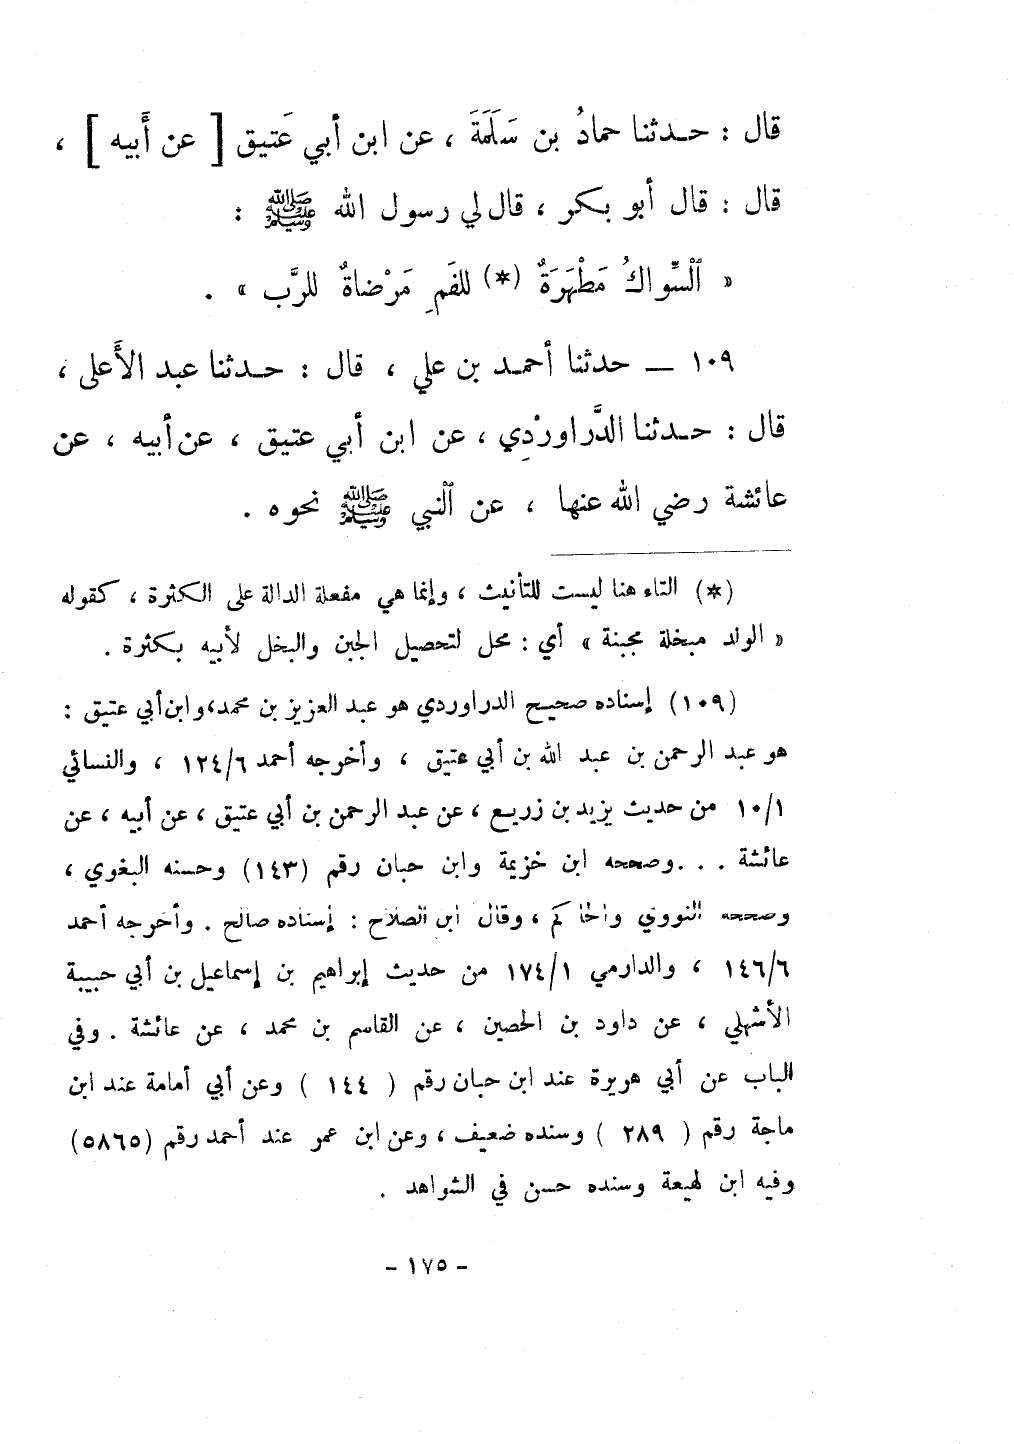 قال : حـدثنا حمادُ بن سَلَمَةَ ، عن ابن أبي عَتيق [ عن أَبيه ] ،
قال : قال أبو بكر ، قال لي رسول الله ﷺ :
« ٱلسِّواكُ مَطْهَرَةٌ (*) للفَمِ مَرْضاةٌ للرَّب » .
١٠٩ ـ حدثنا أحمـد بن علي ، قال : حـدثنا عبد الأَعلى ،
قال : حـدثنا الدَّراورْدِي ، عن ابن أبي عتيق ، عن أبيه ، عن
عائشة رضي الله عنها ، عن ٱلنبي ﷺ نحوه .
(*) التاء هنا ليست للتأنيث ، وإنما هي مفعلة الدالة على الكثرة ، كقوله
« الولد مبخلة مجبنة » أي : محل لتحصيل الجبن والبخل لأبيه بكثرة .
(١٠٩) إسناده صحيح الدراوردي هو عبد العزيز بن محمد، وابن أبي عتيق :
هو عبد الرحمن بن عبد الله بن أبي عتيق ، وأخرجه أحمد ١٢٤/٦ ، والنسائي
١٠/١ من حديث يزيد بن زريع ، عن عبد الرحمن بن أبي عتيق ، عن أبيه ، عن
عائشة . . .وصححه ابن خزيمة وابن حبان رقم (١٤٣) وحسنه البغوي ،
وصححه النووي والحاكم ، وقال ابن الصلاح : إسناده صالح . وأخرجه أحمد
١٤٦/٦ ، والدارمي ١٧٤/١ من حديث إبراهيم بن إسماعيل بن أبي حبيبة
الأشهلي ، عن داود بن الحصين ، عن القاسم بن محمد ، عن عائشة . وفي
الباب عن أبي هريرة عند ابن حبان رقم ( ١٤٤ ) وعن أبي أمامة عند ابن
ماجة رقم ( ٢٨٩ ) وسنده ضعيف ، وعن ابن عمر عند أحمد رقم (٥٨٦٥)
وفيه ابن لهيعة وسنده حسن في الشواهد .
- ١٧٥ -